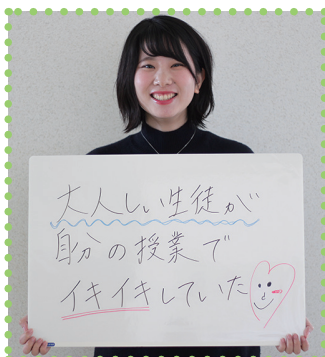 大人しい生徒が
自分の授業で
イキイキしていた